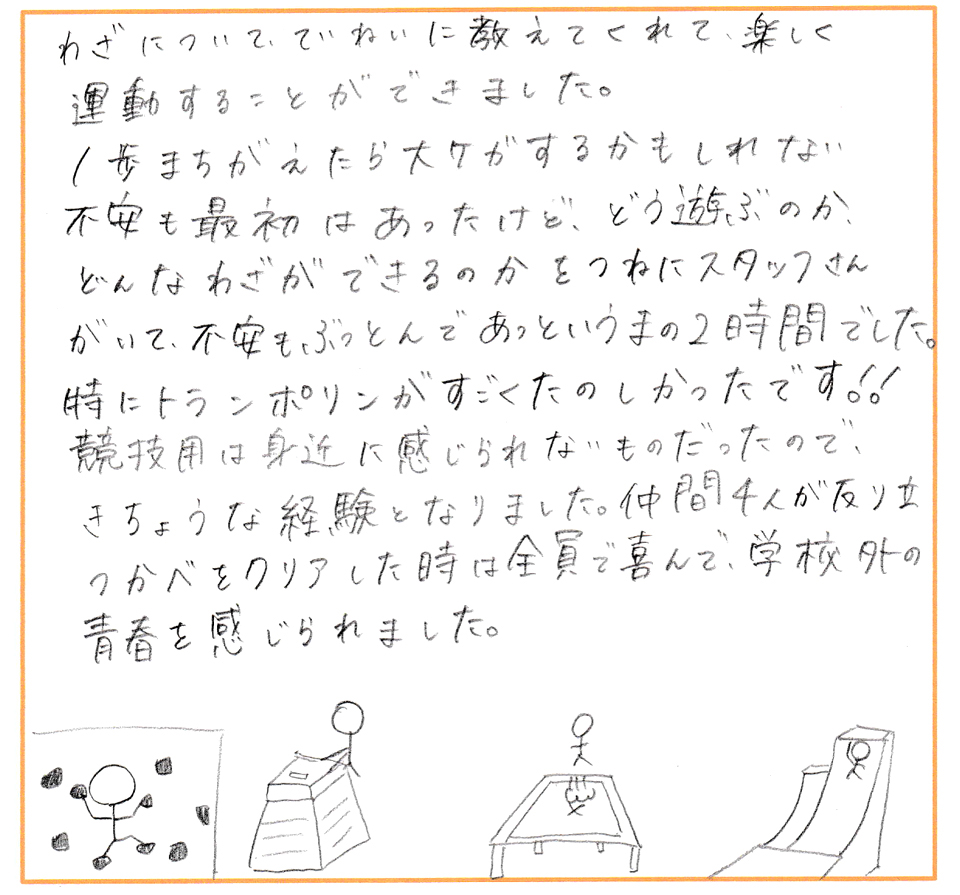 わざについて、ていねいに教えてくれて、楽しく
運動することができました。
1歩まちがえたら大ケガするかもしれない
不安も最初はあったけど、どう遊ぶのか、
どんなわざができるのかをつねにスタッフさん
がいて、不安もぶっとんであっというまの2時間でした。
特にトランポリンがすごくたのしかったです!!
競技用は身近に感じられないものだったので、
きちょうな経験となりました。仲間4人が反り立
つかべをクリアした時は全員で喜んで、学校外の
青春を感じられました。